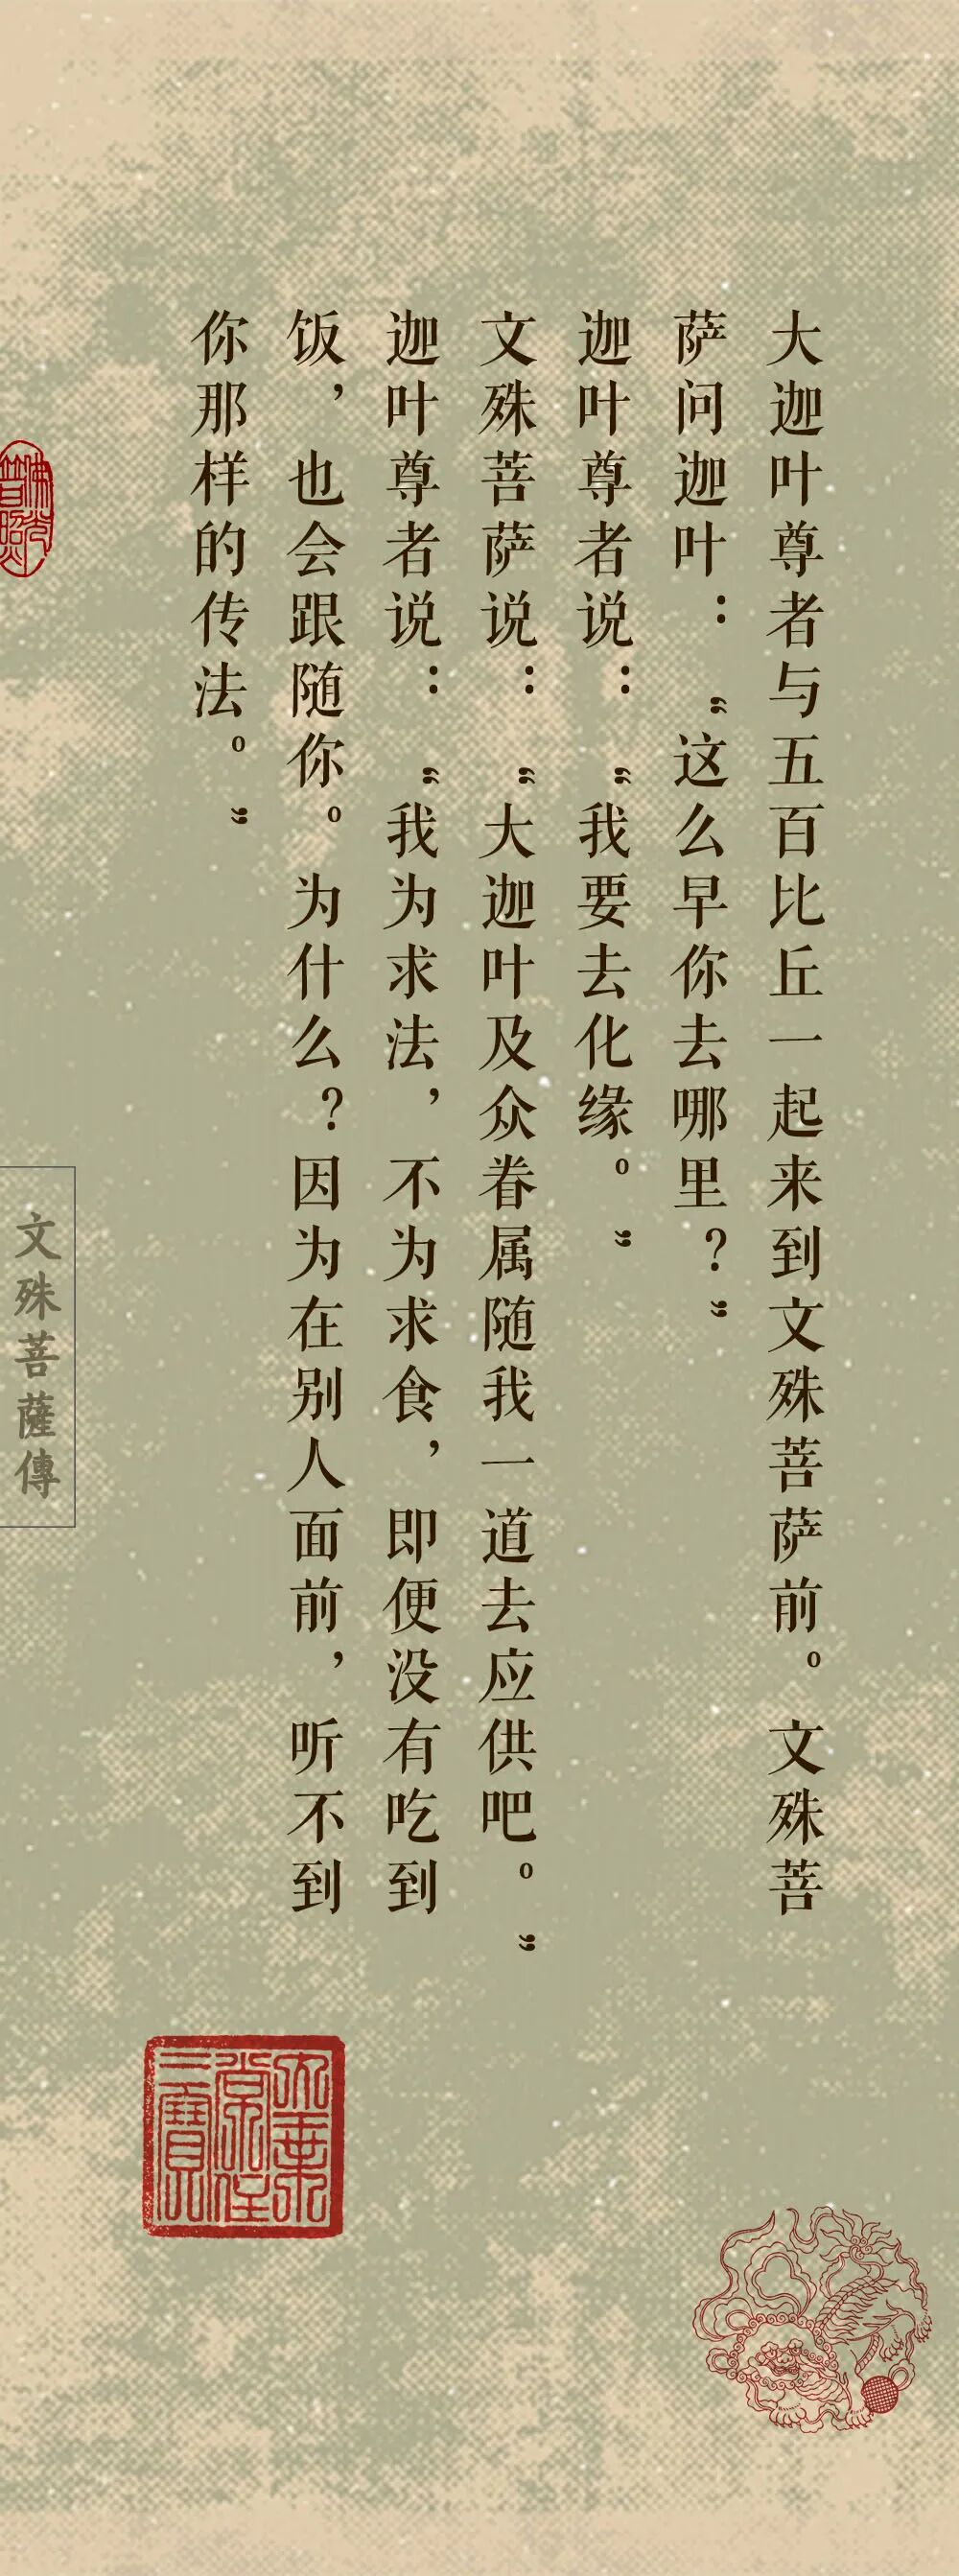 大迦叶尊者与五百比丘一起来到文殊菩萨前。文殊菩
萨问迦叶：“这么早你去哪里？”
迦叶尊者说：“我要去化缘。”
文殊菩萨说：“大迦叶及众眷属随我一道去应供吧。”
迦叶尊者说：“我为求法，不为求食，即便没有吃到
饭，也会跟随你。为什么？因为在别人面前，听不到
你那样的传法。”
文殊菩薩傳
佛光
普照